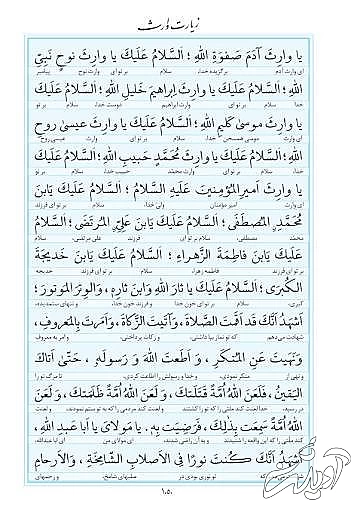 زیارت وارث
یا وارِثَ آدَمَ صَفوَةِ اللهِ ؛ اَلسَّلامُ عَلَیكَ یا وارِثَ نوحٍ نَبِیِّ
ای وارث آدم برگزیده خدا، سلام بر تو ای وارث نوح پیامبر
اللهِ ؛ اَلسَّلامُ عَلَیكَ یا وارِثَ اِبراهیمَ خَلیلِ اللهِ ؛ اَلسَّلامُ عَلَیكَ
خدا سلام بر تو ای وارث ابراهیم دوست خدا، سلام بر تو
یا وارِثَ موسىٰ كَلیمِ اللهِ ؛ اَلسَّلامُ عَلَیكَ یا وارِثَ عیسىٰ روحِ
ای وارث موسی همسخن خدا، سلام بر تو ای وارث عیسی روح
اللهِ ؛ اَلسَّلامُ عَلَیكَ یا وارِثَ مُحَمَّدٍ حَبیبِ اللهِ ؛ اَلسَّلامُ عَلَیكَ
خدا، سلام بر تو ای وارث محمّد حبیب خدا، سلام بر تو
یا وارِثَ اَمیرِ المُؤمِنینَ عَلَیهِ السَّلامُ ؛ اَلسَّلامُ عَلَیكَ یَابنَ
ای وارث امیر مؤمنان ولی خدا، سلام بر تو ای فرزند
مُحَمَّدٍ المُصطَفىٰ ؛ اَلسَّلامُ عَلَیكَ یَابنَ عَلِیٍّ المُرتَضىٰ ؛ اَلسَّلامُ
محمّد مصطفی، سلام بر تو ای فرزند علی مرتضی، سلام
عَلَیكَ یَابنَ فاطِمَةَ الزَّهراءِ ؛ اَلسَّلامُ عَلَیكَ یَابنَ خَدیجَةَ
بر تو ای فرزند فاطمه زهرا، سلام بر تو ای فرزند خدیجه
الكُبرىٰ ؛ اَلسَّلامُ عَلَیكَ یا ثارَ اللهِ وَابنَ ثارِهِ ، وَالوِترَ المَوتورَ ؛
كبری، سلام بر تو ای خون خدا و فرزند خون خدا، و تنهای ستمدیده،
اَشهَدُ اَنَّكَ قَد اَقَمتَ الصَّلاةَ ، وَآتَیتَ الزَّكاةَ ، وَاَمَرتَ بِالمَعروفِ ،
شهادت می‌دهم كه تو نماز بپا داشتی، و زكات پرداختی، و امر به معروف
وَنَهَیتَ عَنِ المُنكَرِ ، وَ اَطَعتَ اللهَ وَ رَسولَهُ ، حَتّىٰ اَتاكَ
و نهی از منكر نمودی، و خدا و رسولش را اطاعت كردی، تا مرگ تو را
الیَقینُ ، فَلَعَنَ اللهُ اُمَّةً قَتَلَتكَ ، وَ لَعَنَ اللهُ اُمَّةً ظَلَمَتكَ ، وَ لَعَنَ
در رسید، خدا لعنت كند ملتی را كه تو را كشتند و لعنت كند مردمی را كه به تو ستم نمودند، و لعنت
اللهُ اُمَّةً سَمِعَت بِذٰلِكَ ، فَرَضِیَت بِهِ . یا مَولایَ یا اَبا عَبدِ اللهِ ،
كند ملتی را كه این واقعه را شنیدند و به آن راضی شدند، ای مولای من ای ابا عبدالله،
اَشهَدُ اَنَّكَ كُنتَ نورًا فِی الاَصلابِ الشّامِخَةِ ، وَالاَرحامِ
كه تو نوری بودی در صلبهای شامخ، و رحمهای
۱۰۵۰